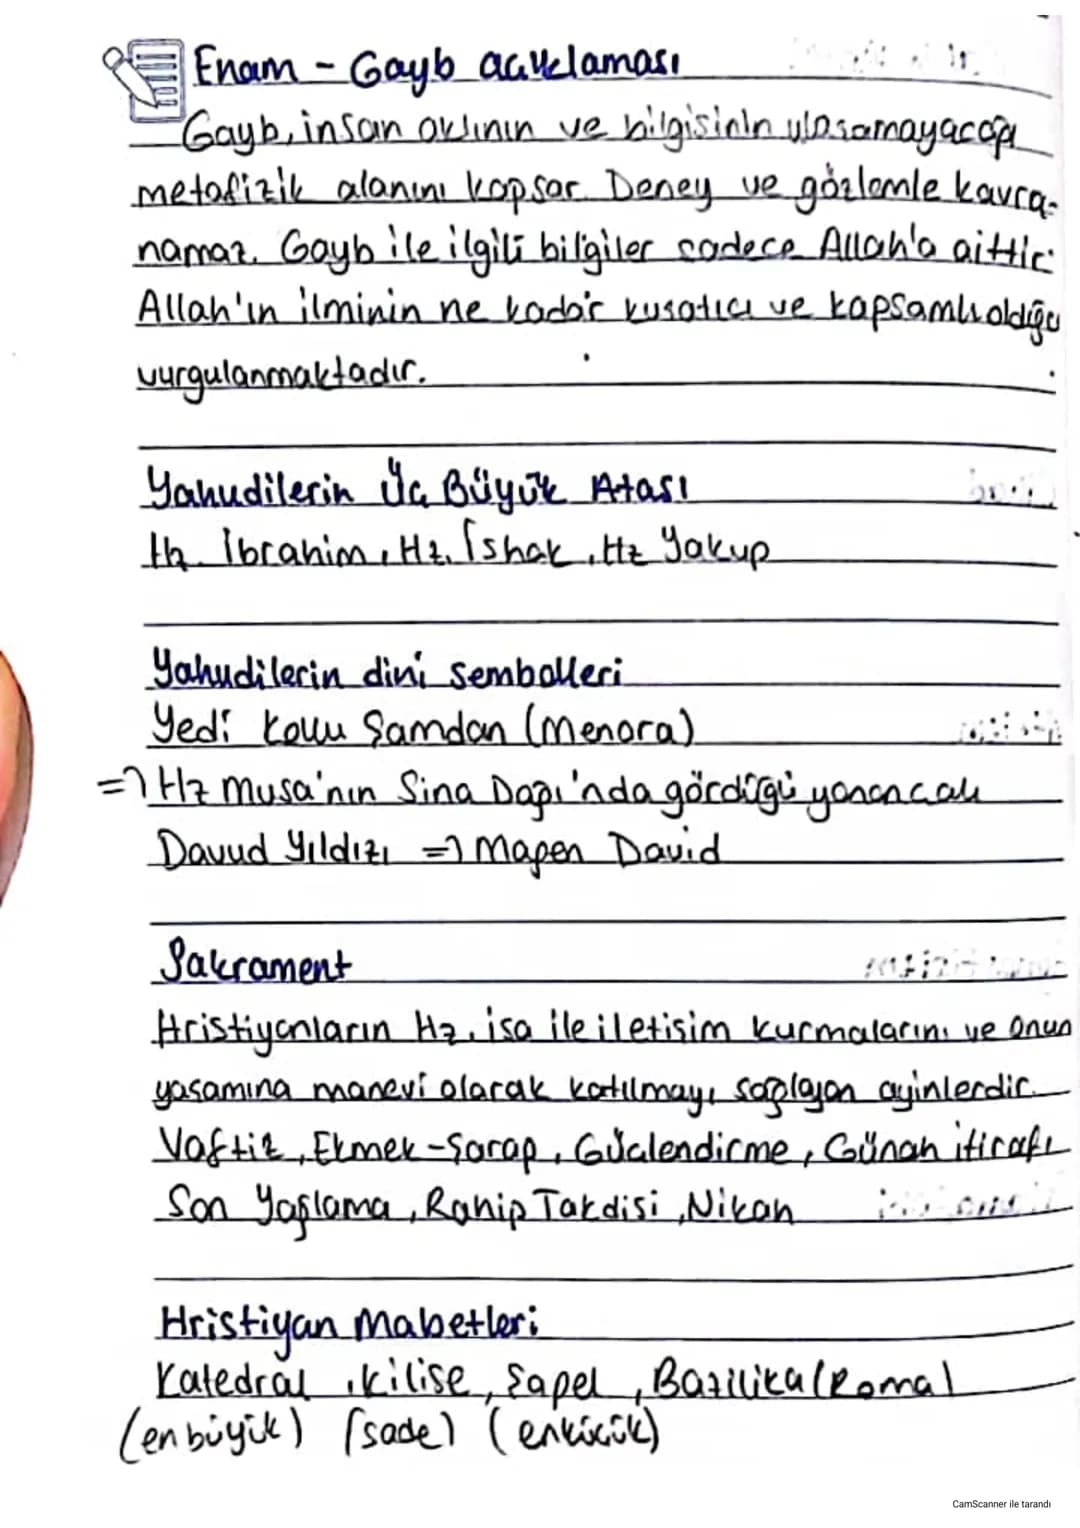 Enam - Gayb açıklaması
Gayb, insan aklının ve bilgisinin ulaşamayacağı
metafizik alanını kapsar. Deney ve gözlemle kavra-
namaz. Gayb ile ilgili bilgiler sadece Allah'a aittir.
Allah'ın ilminin ne kadar kuşatıcı ve kapsamlı olduğu
vurgulanmaktadır.
Yahudilerin Üç Büyük Atası
Hz. İbrahim, Hz. İshak, Hz Yakup
Yahudilerin dini sembolleri
Yedi Kollu Şamdan (Menora)
=> Hz Musa'nın Sina Dağı'nda gördüğü yanan çalı
Davud Yıldızı => Magen David
Sakrament
Hristiyanların Hz. isa ile iletişim kurmalarını ve onun
yaşamına manevi olarak katılmayı sağlayan ayinlerdir.
Vaftiz, Ekmek-Şarap, Güçlendirme, Günah itirafı
Son Yağlama, Rahip Takdisi, Nikah
Hristiyan Mabetleri
Katedral, kilise, Şapel, Bazilika (Roma)
(en büyük) (sade) (en küçük)
CamScanner ile tarandı